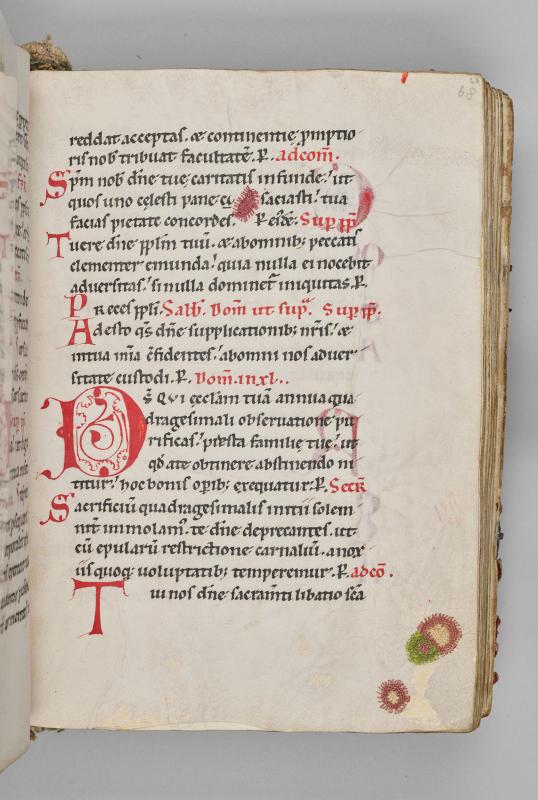 68
reddat acceptas. & continentie p̱mptio
ris nob̅ tribuat facultate̅. P. ad com̅.
Sp̅m nob̅ dn̅e tue caritatis infunde. ut
quos uno celesti pane ci saciasti. tua
facias pietate concordes. P eiͤde̅. Sup pp̅.
Tuere dn̅e pp̅lm tuu̅. & ab omnib; peccatis
clementer emunda. quia nulla ei nocebit
aduersitas. si nulla dominet̅ iniquitas. P.
Preces pp̅li. Sabb̅. Dom̅ ut sup̅ᵃ. Sup pp̅.
Adesto qs̅ dn̅e supplicationib; nr̅is. &
in tua mi̅a c̅fidentes. ab omni nos aduer
sitate custodi. P. Dom̅. in xl..
Ds̅ QVI ęcclam̅ tua̅ annua qua
dragesimali obseruatione pu
rificas. presta familię tuę. ut
qd̅ a te obtinere abstinendo ni
titur. hoc bonis op̱ib; exequatur. P. Secr̅
Sacrificiu̅ quadragesimalis initii solem
nit̅ immolam᾿. te dn̅e deprecantes. ut
cu̅ epularu̅ restrictione carnaliu̅. a nox
iis quoq; uoluptatib; temperemur. P. ad co̅.
Tui nos dn̅e sacram̅ti libatio sc̅a